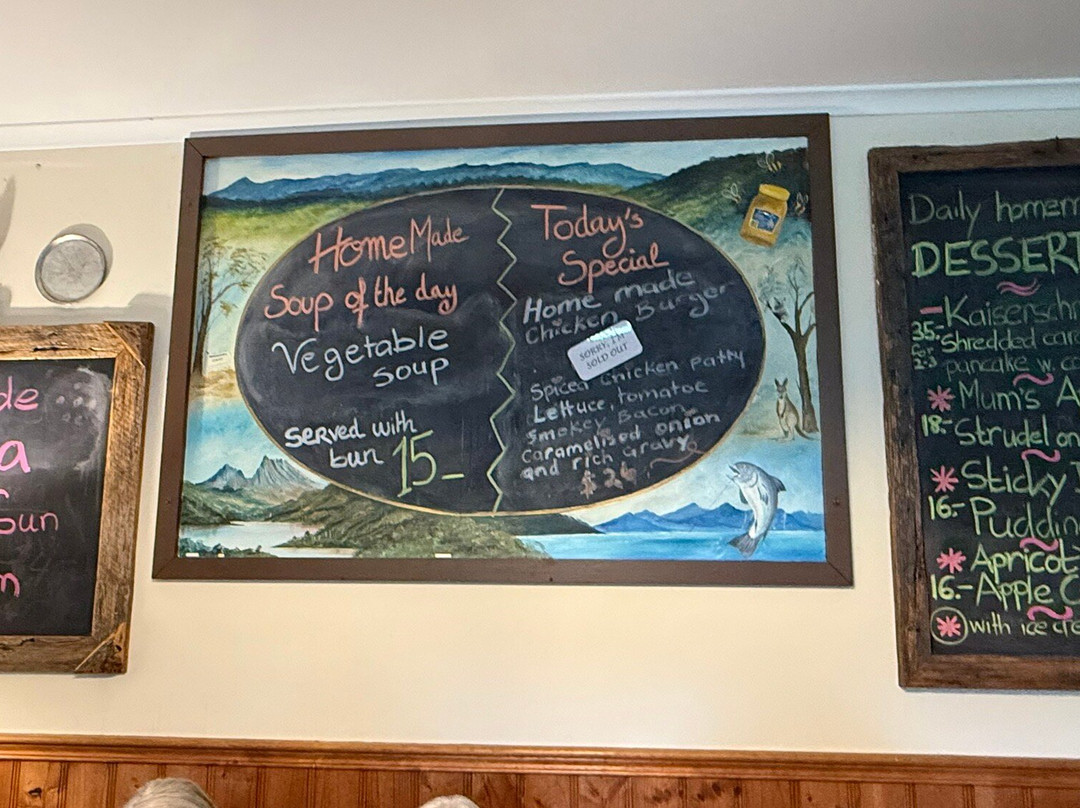 de
a
bun
n
Home Made
Soup of the day
Vegetable
soup
served with
bun 15-
Today's
Special
Home made
Chicken Burger
SORRY, I'M
SOLD OUT
Spiced chicken patty
Lettuce, tomatoe
smokey Bacon
caramelised onion
and rich gravy
$ 24
Daily homem
DESSERT
- Kaisersch
35.-
Shredded car
pancake w. c
* Mum's A
18.- Strudel on
* Sticky
16.- Puddin
* Apricot
16.- Apple C
* with ice cre